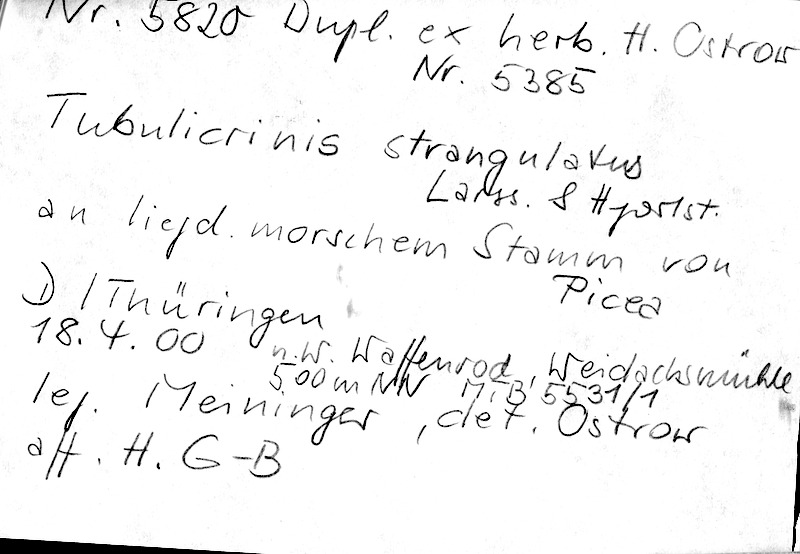 Nr. 5820 Dupl. ex herb. H. Ostrow
Nr. 5385
Tubulicrinis strangulatus
Larss. & Hjortst.
an liegd. morschem Stamm von
Picea
D / Thüringen
18.4.00 n.W. Waffenrod, Weidachsmühle
500m NN MTB 5531/1
leg. Meininger, det. Ostrow
att. H. G-B